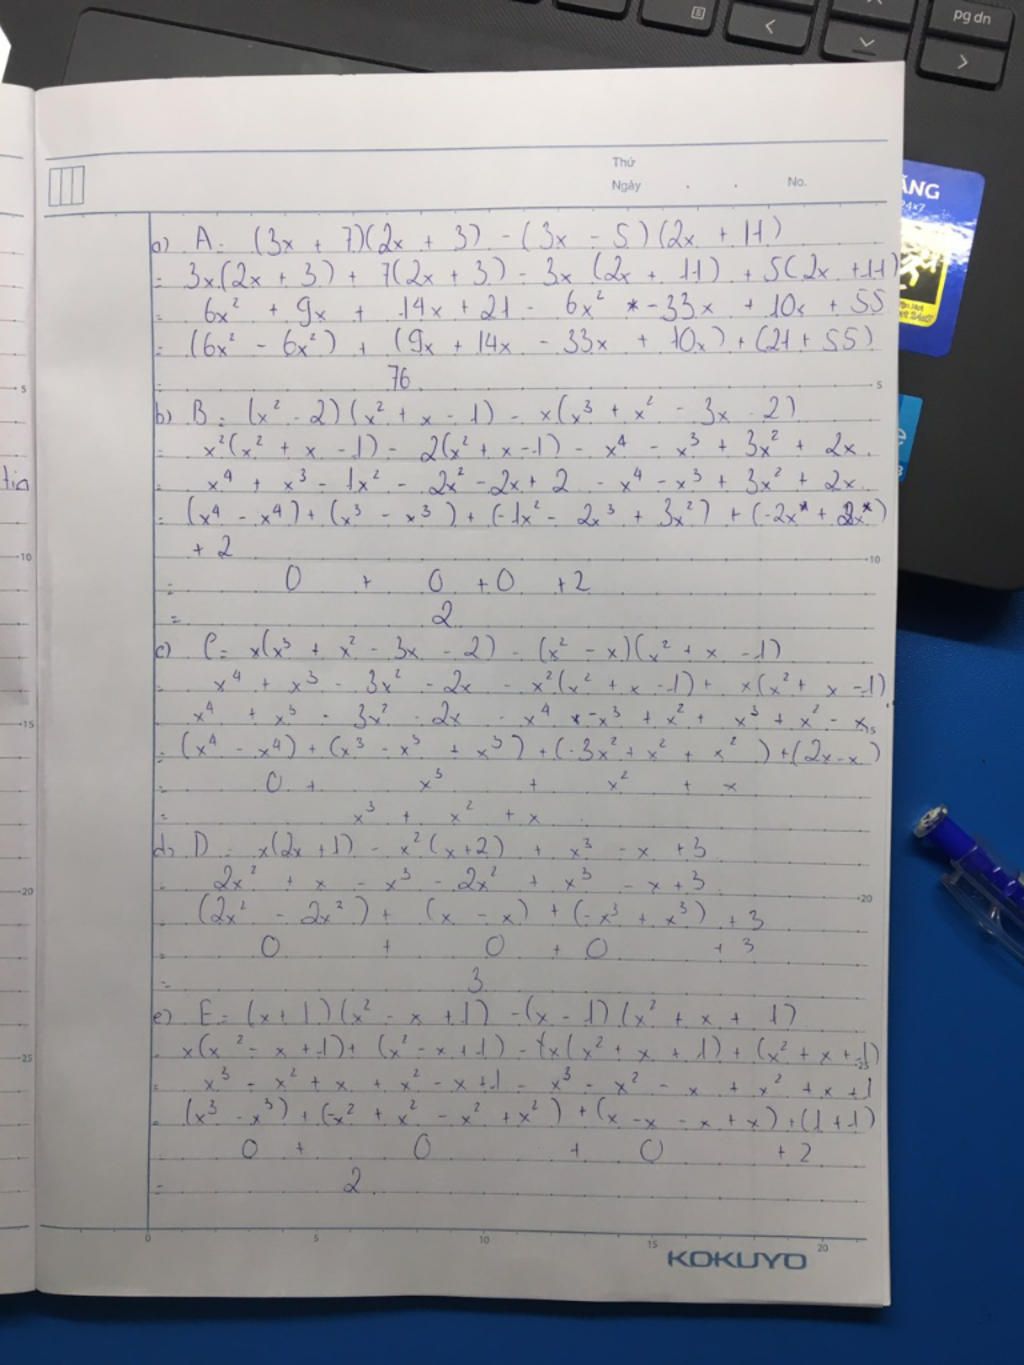 pg dn
Thứ
Ngày . . No.
ĂNG
24x7
a) A = (3x + 7)(2x + 3) - (3x - 5)(2x + 11)
= 3x(2x + 3) + 7(2x + 3) - 3x (2x + 11) + 5(2x + 11)
= 6x² + 9x + 14x + 21 - 6x² - 33x + 10x + 55
= (6x² - 6x²) + (9x + 14x - 33x + 10x) + (21 + 55)
= 76
5
b) B = (x² - 2)(x² + x - 1) - x(x³ + x² - 3x - 2)
= x²(x² + x - 1) - 2(x² + x - 1) - x⁴ - x³ + 3x² + 2x
= x⁴ + x³ - 1x² - 2x² - 2x + 2 - x⁴ - x³ + 3x² + 2x
= (x⁴ - x⁴) + (x³ - x³) + (-1x² - 2x³ + 3x²) + (-2x + 2x)
+ 2
10
= 0 + 0 + 0 + 2
= 2
c) C = x(x³ + x² - 3x - 2) - (x² - x)(x² + x - 1)
= x⁴ + x³ - 3x² - 2x - x²(x² + x - 1) + x(x² + x - 1)
x⁴ + x³ - 3x² - 2x - x⁴ - x³ + x² + x³ + x² - x
15
= (x⁴ - x⁴) + (x³ - x³ + x³) + (-3x² + x² + x²) + (2x - x)
= 0 + x³ + x² + x
= x³ + x² + x
d) D = x(2x + 1) - x²(x + 2) + x³ - x + 3
= 2x² + x - x³ - 2x² + x³ - x + 3
20
(2x² - 2x²) + (x - x) + (-x³ + x³) + 3
= 0 + 0 + 0 + 3
= 3
e) E = (x + 1)(x² - x + 1) - (x - 1)(x² + x + 1)
= x(x² - x + 1) + (x² - x + 1) - x(x² + x + 1) + (x² + x + 1)
25
= x³ - x² + x + x² - x + 1 - x³ - x² - x + x² + x + 1
= (x³ - x³) + (-x² + x² - x² + x²) + (x - x - x + x) + (1 + 1)
0 + 0 + 0 + 2
= 2
0 5 10 15 20
KOKUYO